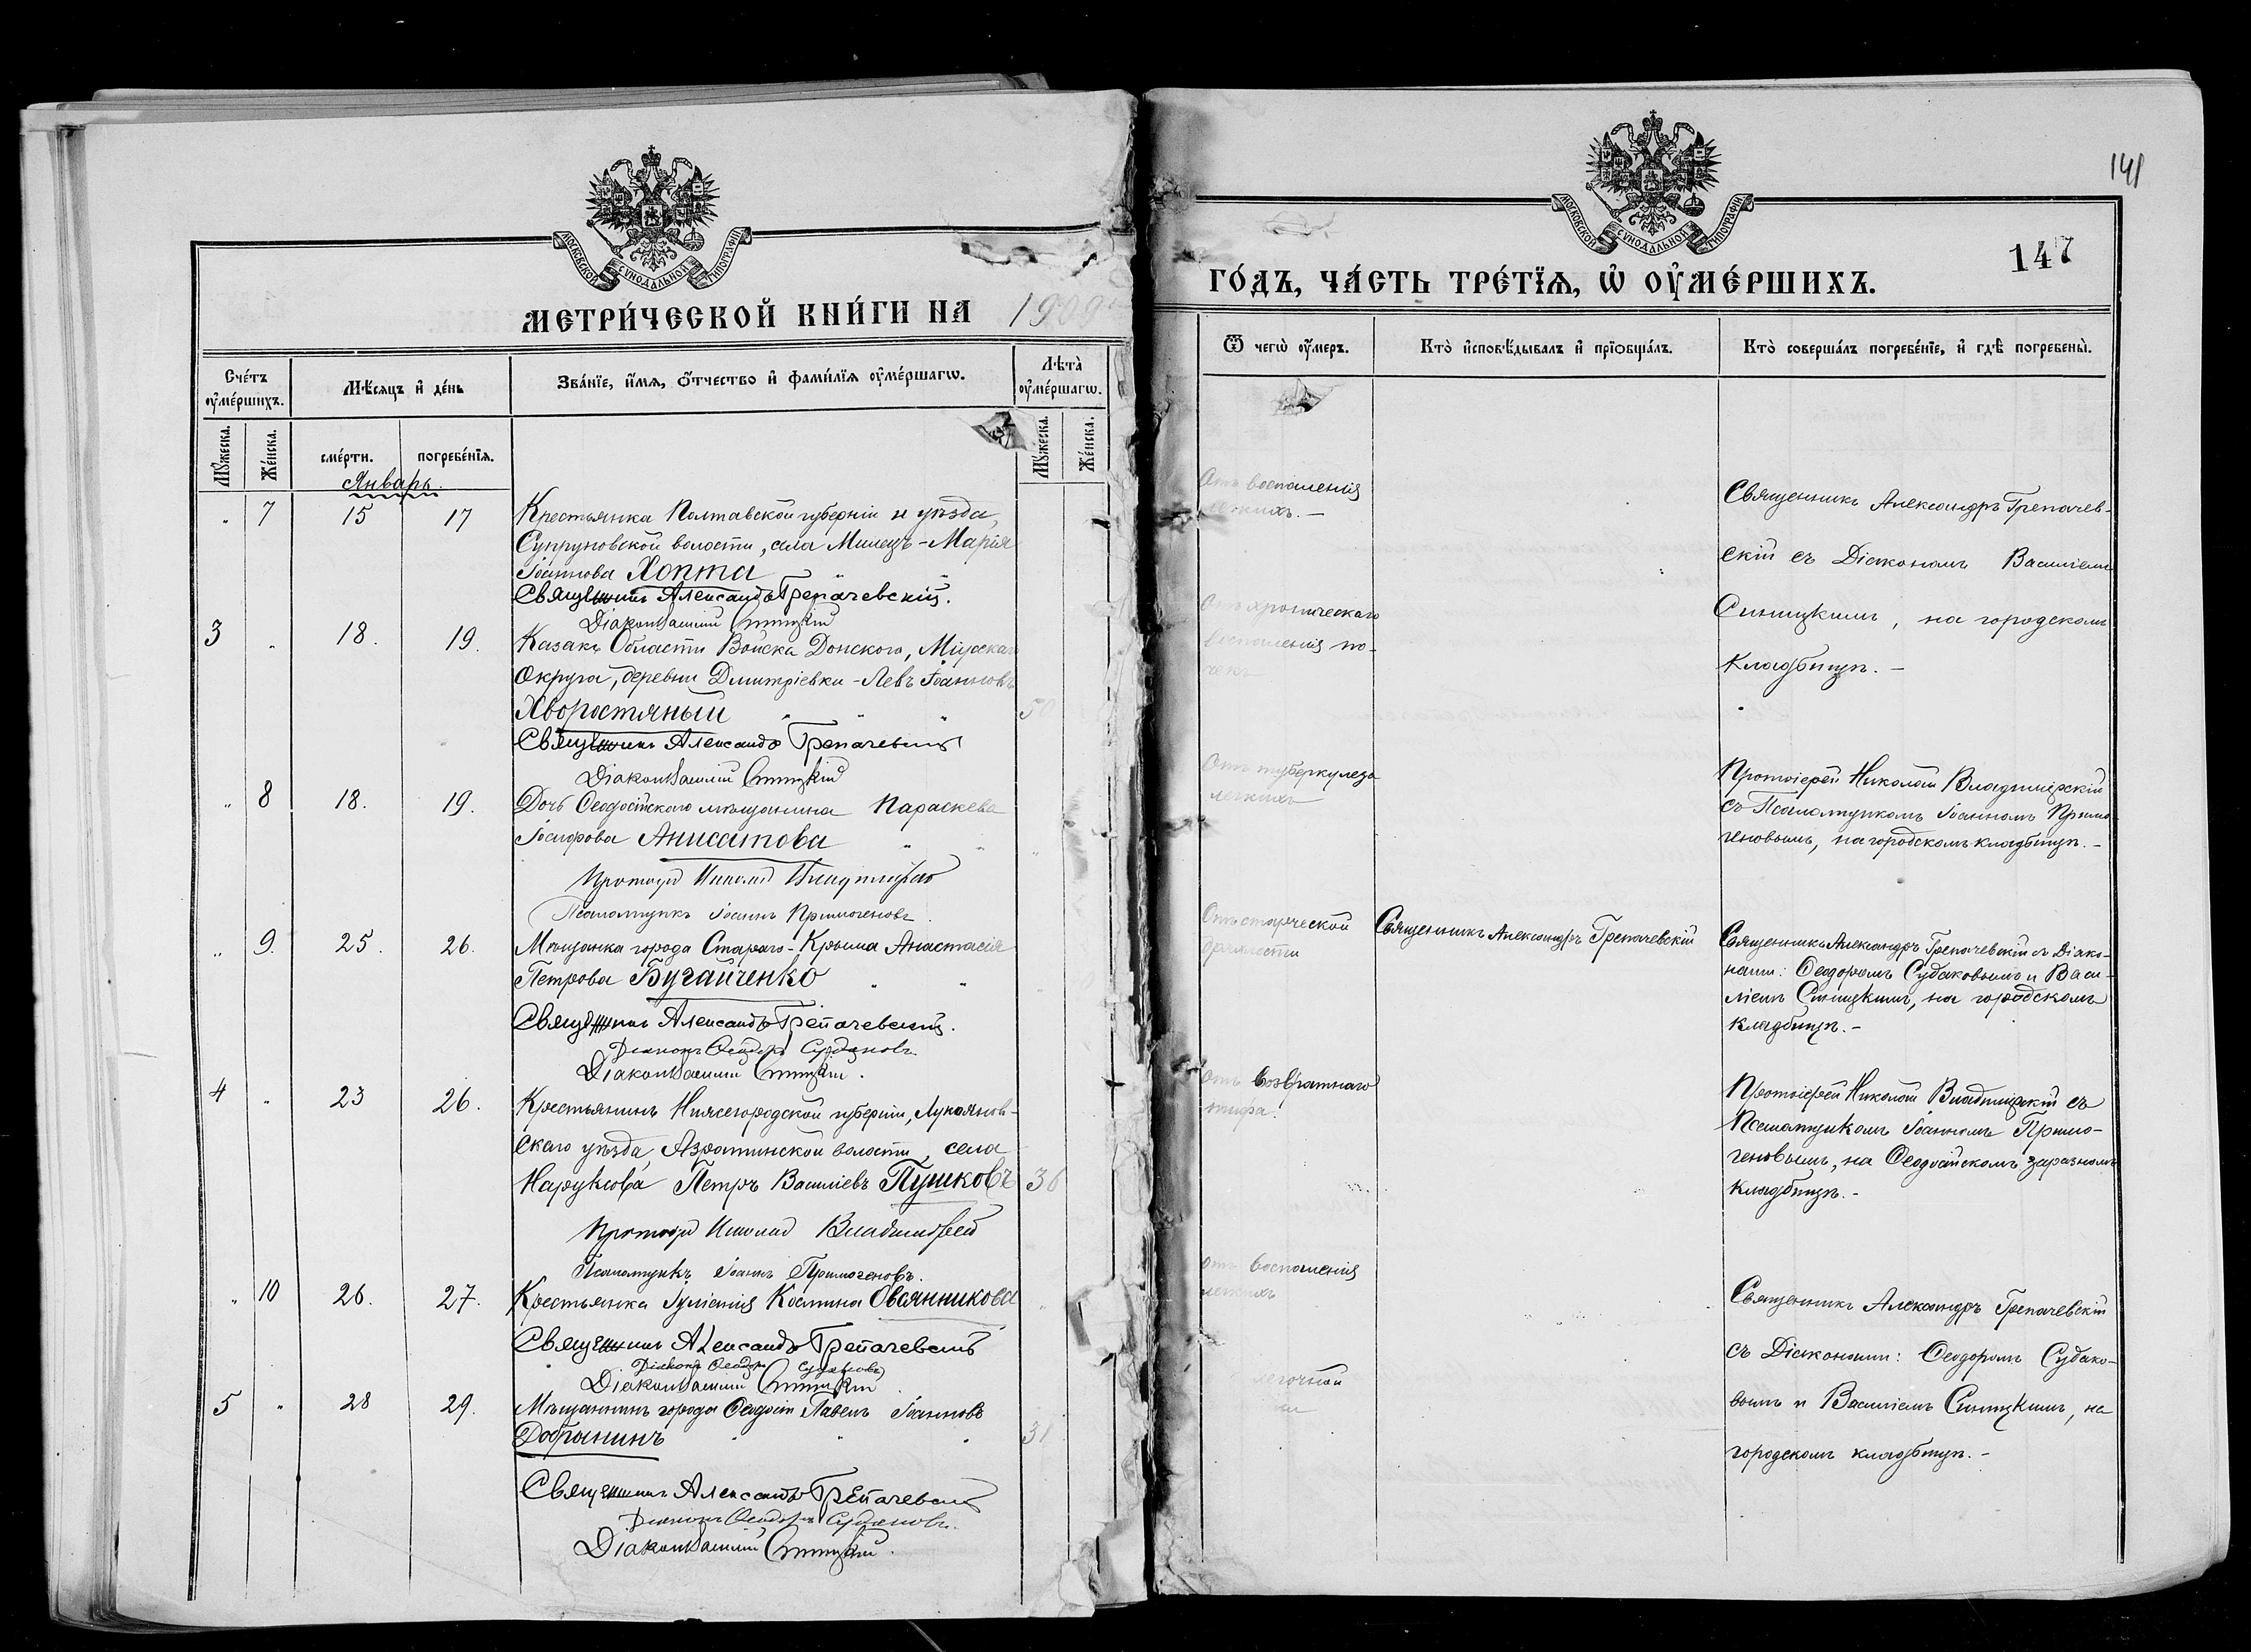 141
147
МОСКОВСКОЙ СУНОДАЛЬНОЙ ТИПОГРАФІИ
МОСКОВСКОЙ СУНОДАЛЬНОЙ ТИПОГРАФІИ
МЕТРИ́ЧЕСКОЙ КНИ́ГИ НА 1909
ГО́ДЪ, ЧА́СТЬ ТРЕ́ТЇѦ, Ѡ ОУ҆МЕ́РШИХЪ.
Сче́тъ оу҆ме́ршихъ.
Мѣ́сѧцъ и҆ де́нь
Зва́нїе, и҆́мѧ, ѻ҆́тчество и҆ фами́лїѧ оу҆ме́ршагѡ.
Лѣта̀ оу҆ме́ршагѡ.
Ѿ чегѡ̀ оу҆́меръ.
Кто̀ и҆сповѣ́дывалъ и҆ прїѡбща́лъ.
Кто̀ соверша́лъ погребе́нїе, и҆ гдѣ̀ погребены̀.
Мꙋ́жеска.
Же́нска.
сме́рти.
погребе́нїѧ.
Мꙋ́жеска.
Же́нска.
Январь.
" 7 15 17
Крестьянка Полтавской губерніи и уѣзда,
Супруновской волости, села Милецъ - Марія
Іоаннова Хопта
Священникъ Александръ Грепачевскій.
Діаконъ Василій Синицкій
Отъ воспаленія
легкихъ. -
Священникъ Александръ Грепачев-
скій съ Діакономъ Василіемъ
Синицкимъ, на городскомъ
кладбищѣ. -
3 " 18. 19.
Казакъ Области Войска Донского, Міускаго
Округа, деревни Дмитріевки - Левъ Іоанновъ
Хворостяный 50
Священникъ Александръ Грепачевскій
Діаконъ Василій Синицкій
Отъ хроническаго
воспаленія по-
чекъ
" 8 18. 19.
Дочь Ѳеодосійскаго мѣщанина Параскева
Іосифова Анисатова
Протоіерей Николай Владимірскій
Псаломщикъ Іоаннъ Примогеновъ.
Отъ туберкулеза
легкихъ
Протоіерей Николай Владимірскій
съ Псаломщикомъ Іоанномъ Примо-
геновымъ, на городскомъ кладбищѣ. -
" 9. 25. 26.
Мѣщанка города Стараго-Крыма Анастасія
Петрова Бугайченко
Священникъ Александръ Грепачевскій.
Діаконъ Ѳеодоръ Судаковъ.
Діаконъ Василій Синицкій.
Отъ старческой
дряхлости
Священникъ Александръ Грепачевскій
Священникъ Александръ Грепачевскій съ Діако-
нами: Ѳеодоромъ Судаковымъ и Васи-
ліемъ Синицкимъ, на городскомъ
кладбищѣ. -
4 " 23 26.
Крестьянинъ Нижегородской губерніи, Лукоянов-
скаго уѣзда, Азратинской волости, села
Наруксова Петръ Василіевъ Пушковъ 36
Протоіерей Николай Владимірскій
Псаломщикъ Іоаннъ Примогеновъ.
отъ возвратнаго
тифа.
Протоіерей Николай Владимірскій съ
Псаломщикомъ Іоанномъ Примо-
геновымъ, на Ѳеодосійскомъ заразномъ
кладбищѣ. -
" 10 26. 27.
Крестьянка Іуліанія Космина Овсянникова
Священникъ Александръ Грепачевскій
Діаконъ Ѳеодоръ Судаковъ
Діаконъ Василій Синицкій.
отъ воспаленія
легкихъ
Священникъ Александръ Грепачевскій
съ Діаконами: Ѳеодоромъ Судако-
вымъ и Василіемъ Синицкимъ, на
городскомъ кладбищѣ. -
5 " 28 29.
Мѣщанинъ города Ѳеодосіи Павелъ Іоанновъ
Добранинъ 31
Священникъ Александръ Грепачевскій
Діаконъ Ѳеодоръ Судаковъ.
Діаконъ Василій Синицкій.
легочной